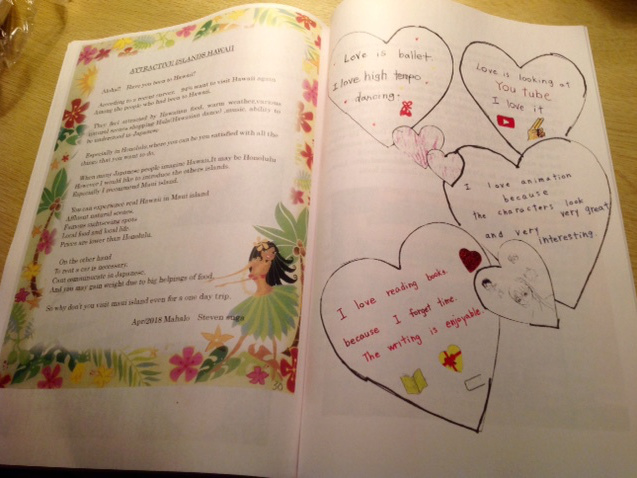 ATTRACTIVE ISLANDS HAWAII
Aloha!! Have you been to Hawaii?
According to a recent survey, 94% want to visit Hawaii again
Among the people who had been to Hawaii.
They feel attracted by Hawaiian food, warm weather,various
natural scenes,shopping,Hula(Hawaiian dance) ,music, ability to
be understood in Japanese.
Especially in Honolulu where you can be you satisfied with all the
things that you want to do.
When many Japanese people imagine Hawaii,It may be Honolulu
However I would like to introduce the others islands.
Especially I recommend Maui island.
You can experience real Hawaii in Maui island
Affluent natural scenes.
Famous sightseeing spots
Local food and local life.
Prices are lower than Honolulu.
On the other hand
To rent a car is necessary.
Cant communicate in Japanese,
And you may gain weight due to big helpings of food.
So why don't you visit maui island even for a one day trip.
Apr/2018 Mahalo Steven
Love is ballet.
I love high tempo
dancing.
Love is looking at
You tube
I love it
I love animation
because
the characters look very great
and very interesting.
I love reading books
because I forget time.
The writing is enjoyable.